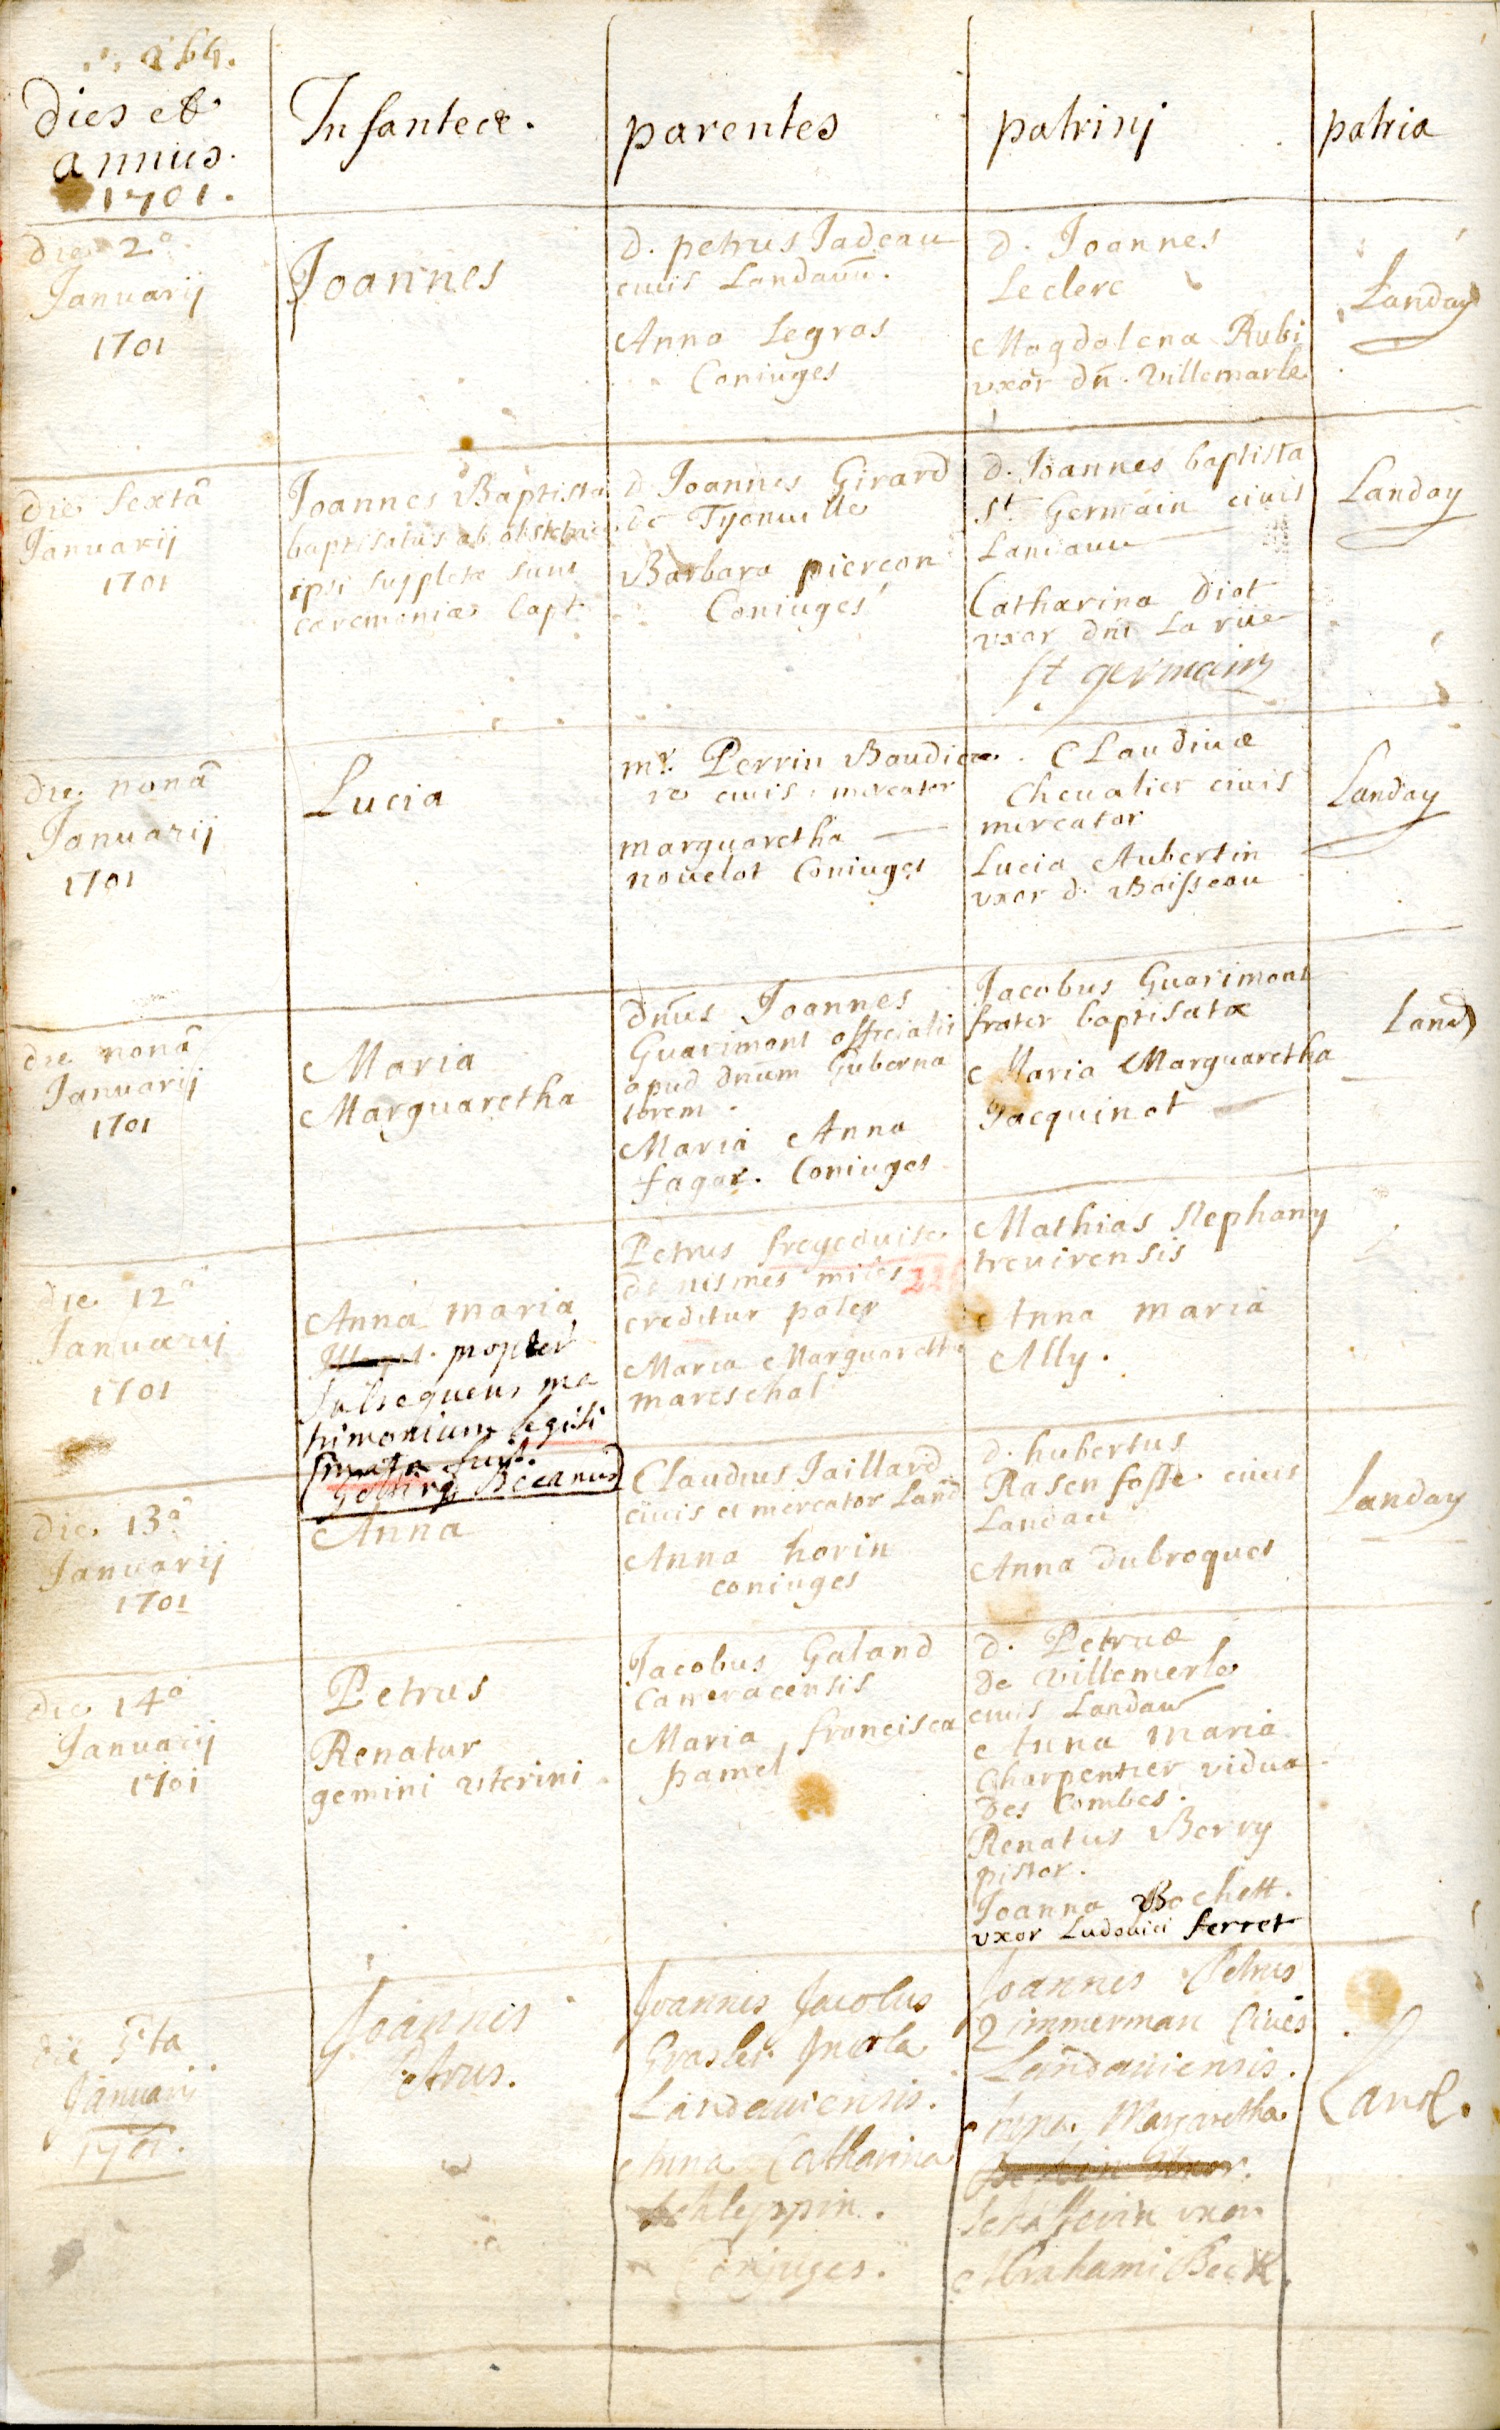 264.
dies et
annus.
1701.
Infantes.
parentes
patrinj
patria
die 2ª
Januarij
1701
Joannes
d. petrus Jadeau
ciuis Landauū.
Anna Legros
Coniuges
d. Joannes
Leclerc
Magdalena Rubi
vxor dn̄. Villemarle
Landau
die Sextâ
Januarij
1701
Joannes Baptista
baptisatus ab obstetrice
ipsi suppletæ sunt
caremoniæ bapt.
d. Joannes Girard
de Tyonuille
Barbara piercon
Coniuges
d. Joannes baptista
St. Germain ciuis
Landauii
Catharina diot
vxor dni La rüe
st germain
Landau
die nonâ
Januarij
1701
Lucia
mr. Perrin Baudie
re ciuis, mercator
marguaretha
nouelot Coniuges
Claudius
Cheualier ciuis
mercator
Lucia Aubertin
vxor d. Boisseau
Landau
die nonâ
Januarij
1701
Maria
Marguaretha
dn̄us Joannes
Guarimont officialis
apud dnum Guberna
torem.
Maria Anna
fagar. Coniuges
Jacobus Guarimont
frater baptisatæ
Maria Marguaretha
Jacquinot
Land
die 12ª
Januarij
1701
Anna maria
propter
subsequens ma
trimonium legiti
mata fuit.
Decanus
Petrus fregeduise
de nismes miles
creditur pater
Maria Marguaretha
mareschal
Mathias Stephany
treuirensis
Anna maria
Ally.
die 13ª
Januarij
1701
Anna
Claudius Jaillard
ciuis et mercator Land
Anna horin
coniuges
d. hubertus
Rasenfosse ciuis
Landau
Anna dubroques
Landau
die 14ª
Januarij
1701
Petrus
Renatus
gemini vterini
Jacobus Galand
Cameracensis
Maria francisca
hamel
d. Petrus
de Villemerle
ciuis Landau
Anna maria
Charpentier vidua
des Combes.
Renatus Berry
pistor.
Joanna Bochett.
vxor Ludouici ferret
die 5ta
Januarij
1701.
Joannes
Petrus.
Joannes Jacobus
Grasler Incola
Landauiensis.
Anna Catharina
Schleppin.
Conjuges.
Joannes Petrus
Zimmerman Ciues
Landauiensis.
Anna Margaretha
Schafferin vxor
Abrahami Beck.
Land.